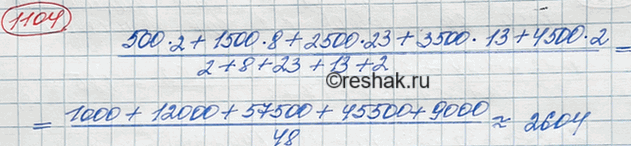 1104
500·2+1500·8+2500·23+3500·13+4500·2 =
2+8+23+13+2
©reshak.ru
= 1000+12000+57500+45500+9000 ≈ 2604
48